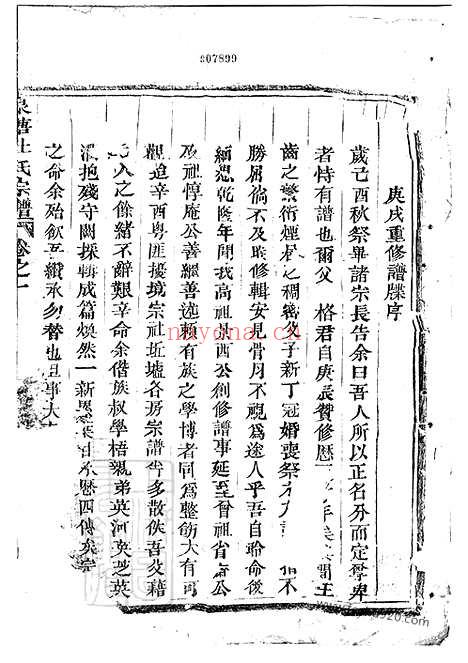 907899
庚戌重修譜牒序
歲己酉秋祭畢諸宗長告余曰吾人所以正名分而定尊卑
者恃有譜也爾父 格君自庚辰贊修歷 年 間王
齒之繁衍煙 之稠密父子新丁冠婚喪祭 不
勝屈倘不及 修輯安見骨月不視為途人乎吾自聆命後
緬想乾隆年間我高祖 西公創修譜事延至曾祖 公
及祖惇庵公善繼善述賴有族之學博者同為整飭大有可
觀迨辛酉粵匪接境宗祖坵墟各房宗譜 多散佚吾父藉
人之餘緒不辭艱辛命余偕族叔學梧親弟英河英芝英
抱殘守闕採輯成篇煥然一新 歷四傳矣宗
之命余殆飲吾 承勿替也且事大
杜氏宗譜 卷之一
nayona.cn